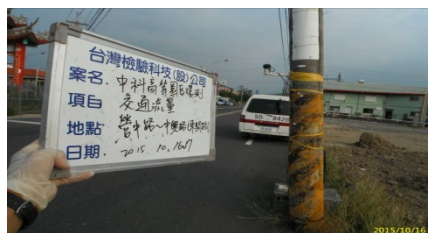 台灣檢驗科技(股)公司
案名. 中科高等
項目 交通流量
地點. 營中路～中興路
日期. 2015. 10. 16
2015/10/16